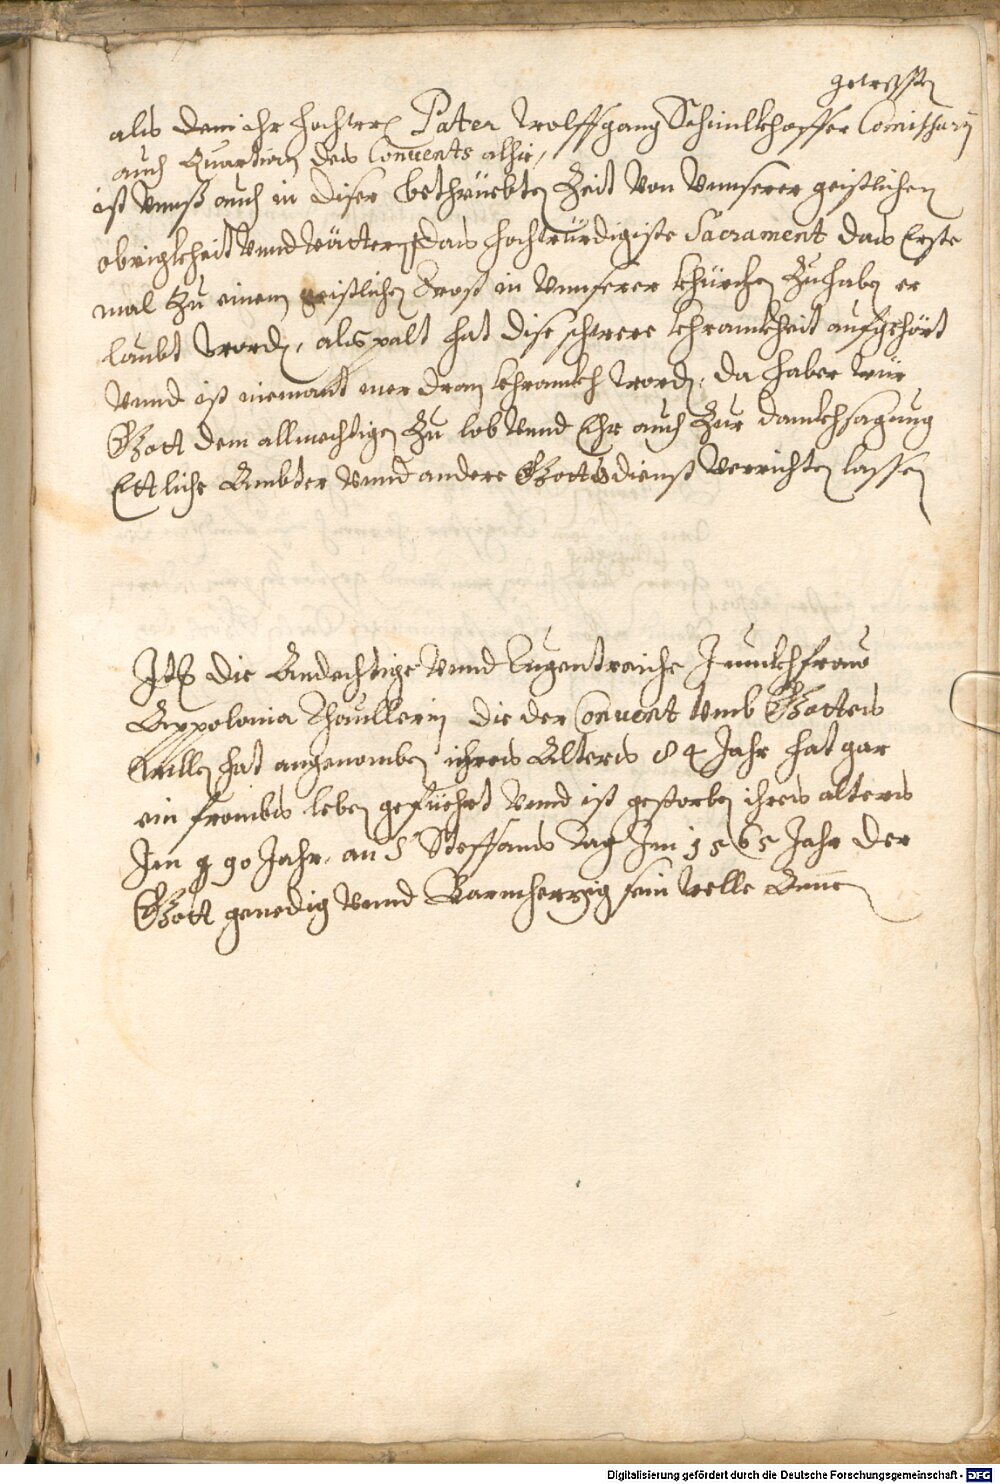 gewesste
als dem ihr hochwer Pater Wolffgang Schmilkhoffer Comissary
auch Quartian des Conuents alhie,
ist vnnß auch in diser bethrüebten Zeit von vnnserer geistlichen
obrigkheit vnnd Vättern das hochwürdigiste Sacrament das Erste
mal zu einem geistlichen Trost in vnnserer khürchen Zuhaben er
laubt worden, alspalt hat dise schwere khrankheit aufgehört
vnnd ist niemant mer dran khrankh worden, da haben wür
Gott dem allmechtigen Zu lob vnnd Ehr auch Zur dankhsagung
Ettliche Ambter vnnd andere Gottsdienst verrichten lassen
Item die Andechtige vnnd tugentraiche Junkhfraw
Appolonia Thaullerin die der Conuent vmb Gottes
willen hat angenomben ihres Alters 84 Jahr hat gar
ein frombs leben gefüehrt vnnd ist gestorben ihres alters
Im 90 Jahr, an S Steffans tag Im 1565 Jahr der
Gott genedig vnnd Barmherzig sein welle Amen
Digitalisierung gefördert durch die Deutsche Forschungsgemeinschaft - DFG